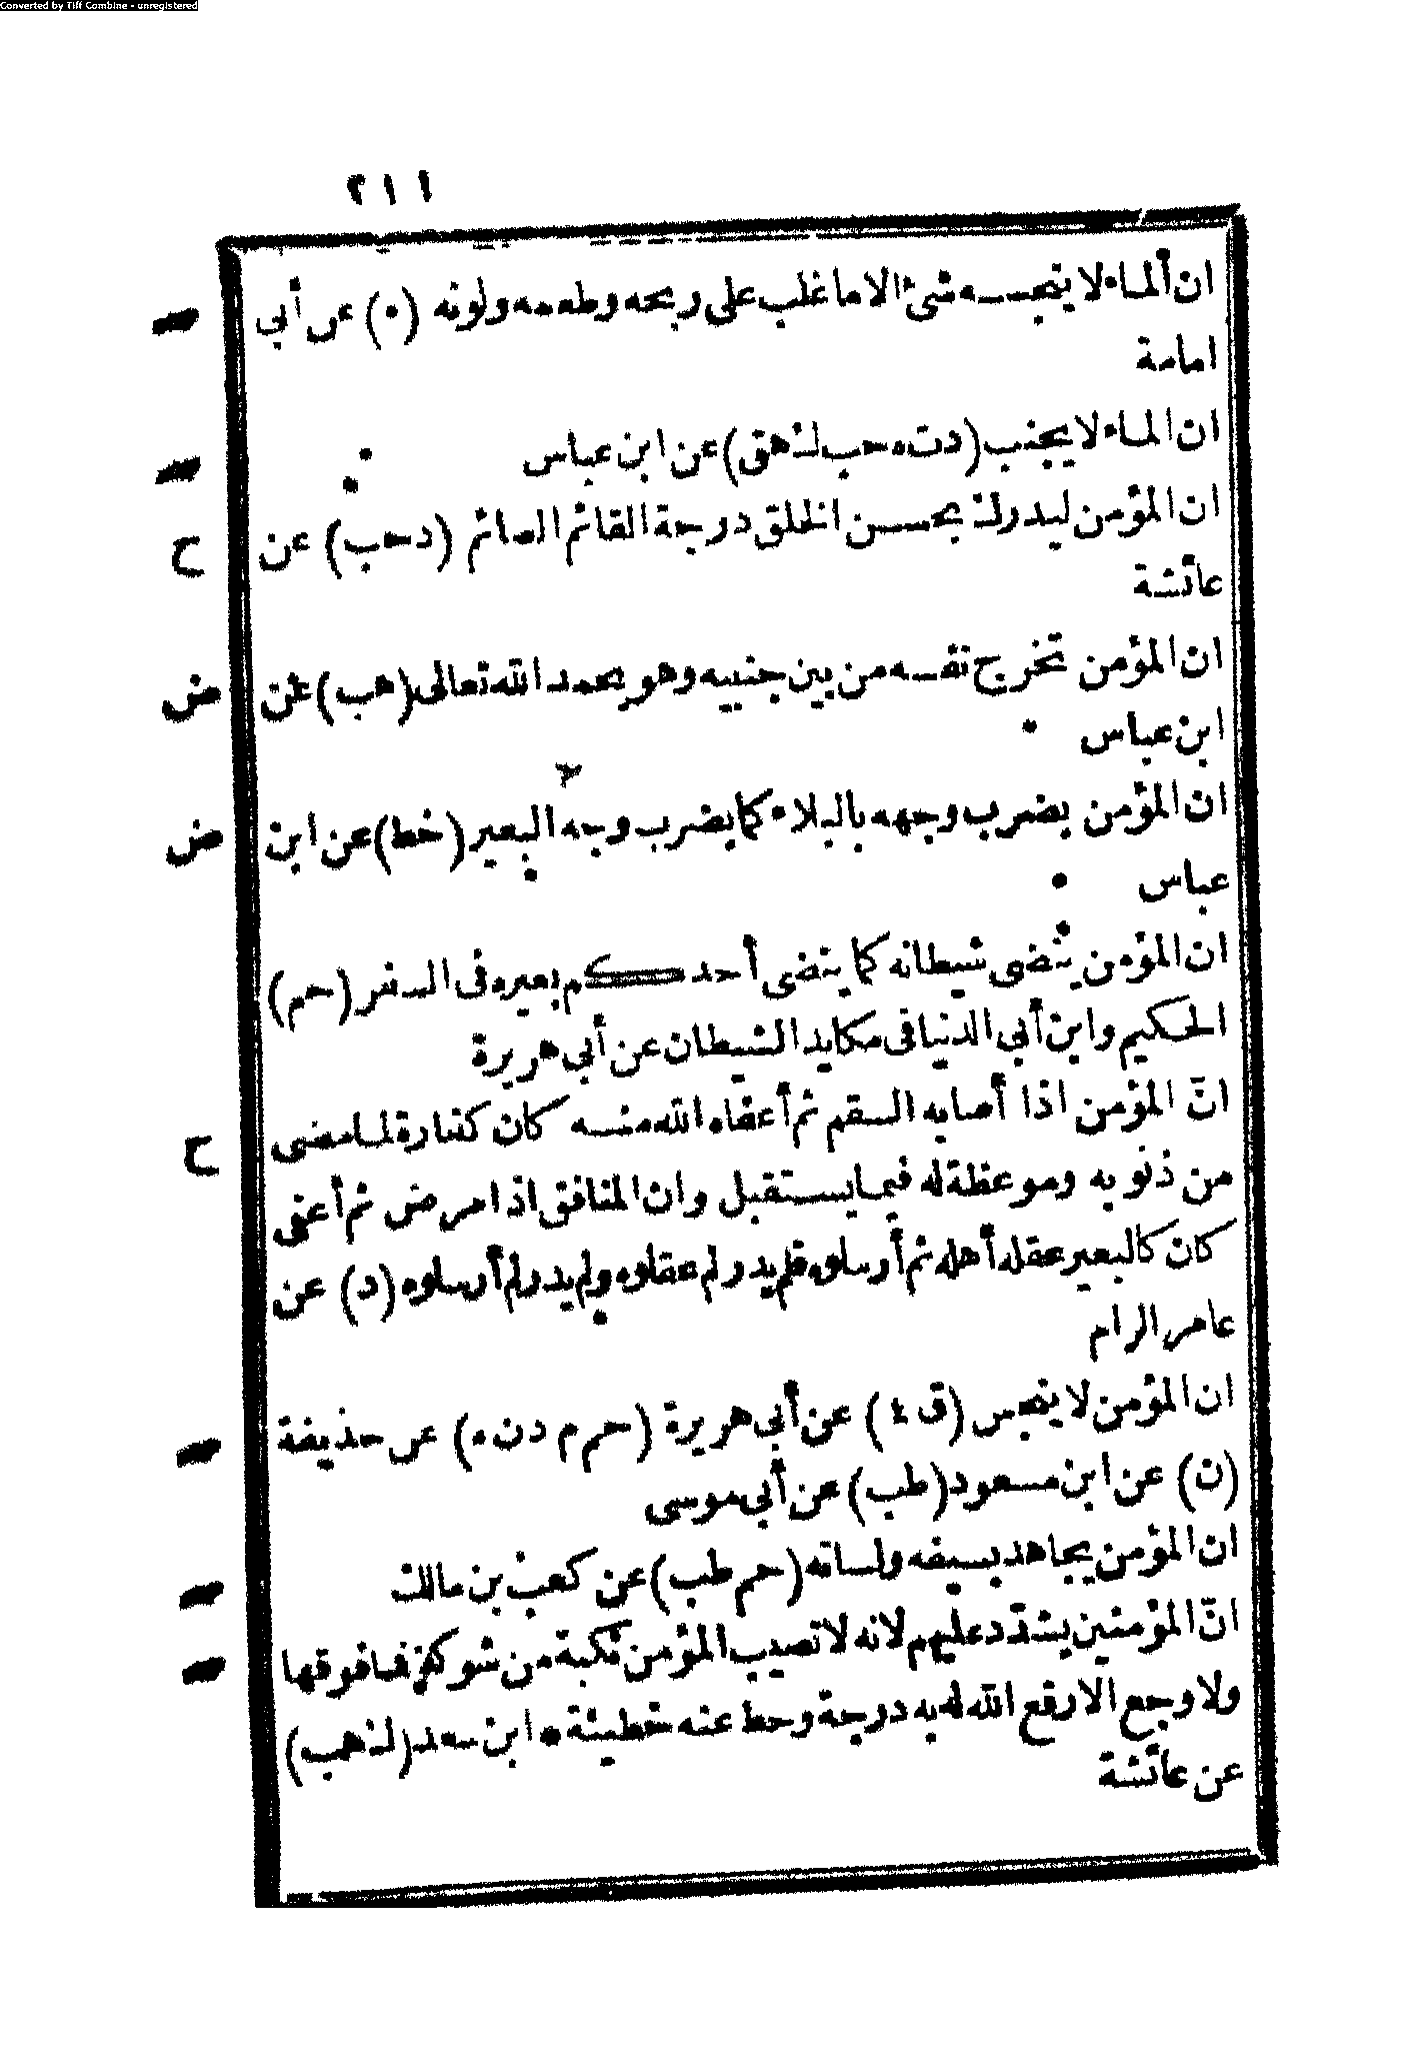 Converted by Tiff Combine - unregistered
٢١١
ان ألماء لا ينجسه شئ الا ما غلب على ريحه وطعمه ولونه (ه) عن أبي
امامة
ان الماء لا يجنب (دت ه حب ك هق) عن ابن عباس
ان المؤمن ليدرك بحسن الخلق درجة القائم الصائم (د حب) عن
ح
عائشة
ان المؤمن تخرج نفسه من بين جنبيه وهو يحمد الله تعالى (هب) عن
ض
ابن عباس
ان المؤمن يضرب وجهه بالبلاء كما يضرب وجه البعير (خط) عن ابن
ض
عباس
ان المؤمن ينضى شيطانه كما ينضى أحدكم بعيره فى السفر (حم)
الحكيم وابن أبي الدنيا فى مكايد الشيطان عن أبي هريرة
انّ المؤمن اذا أصابه السقم ثم أعفاه الله منه كان كفارة لما مضى
ح
من ذنوبه وموعظة له فيما يستقبل وان المنافق اذا مرض ثم أعفى
كان كالبعير عقله أهله ثم أرسلوه فلم يدر لم عقلوه ولم يدر لم أرسلوه (د) عن
عامر الرام
ان المؤمن لا ينجس (ق ٤) عن أبي هريرة (حم م دن ه) عن حذيفة
(ن) عن ابن مسعود (طب) عن أبي موسى
ان المؤمن يجاهد بسيفه ولسانه (حم طب) عن كعب بن مالك
انّ المؤمنين يشدّد عليهم لانه لا تصيب المؤمن نكبة من شوكة فما فوقها
ولا وجع الا رفع الله له به درجة وحط عنه خطيئة • ابن سعد (ك هب)
عن عائشة